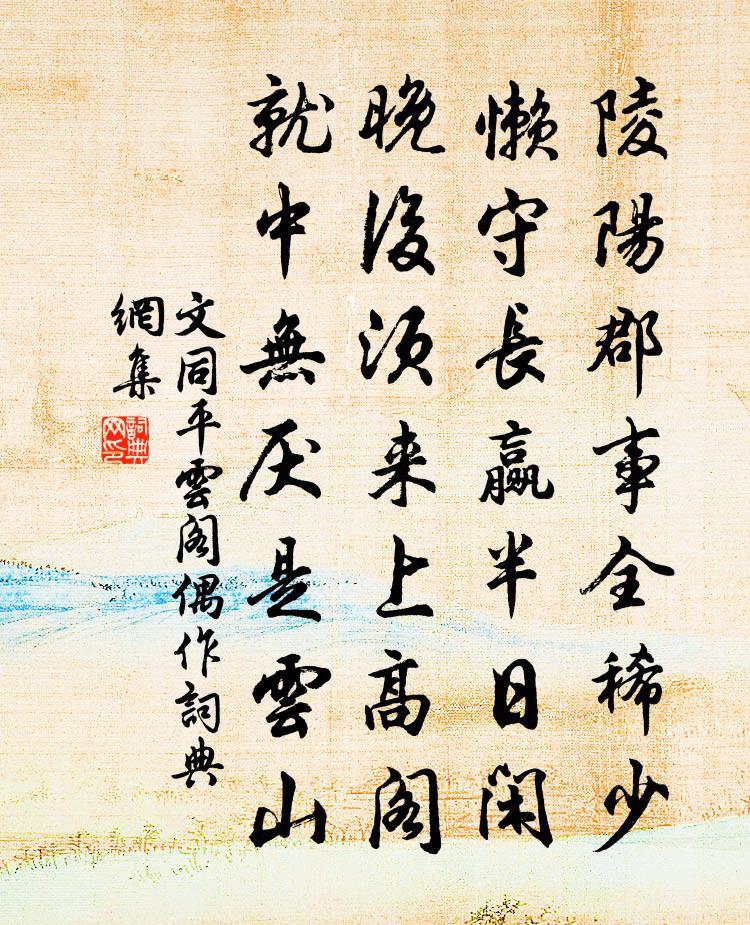 陵陽郡事全稀少
懶守長贏半日閑
晚後須来上高閣
就中無厌是雲山
文同平雲閣偶作詞典
網集
詞典
网印